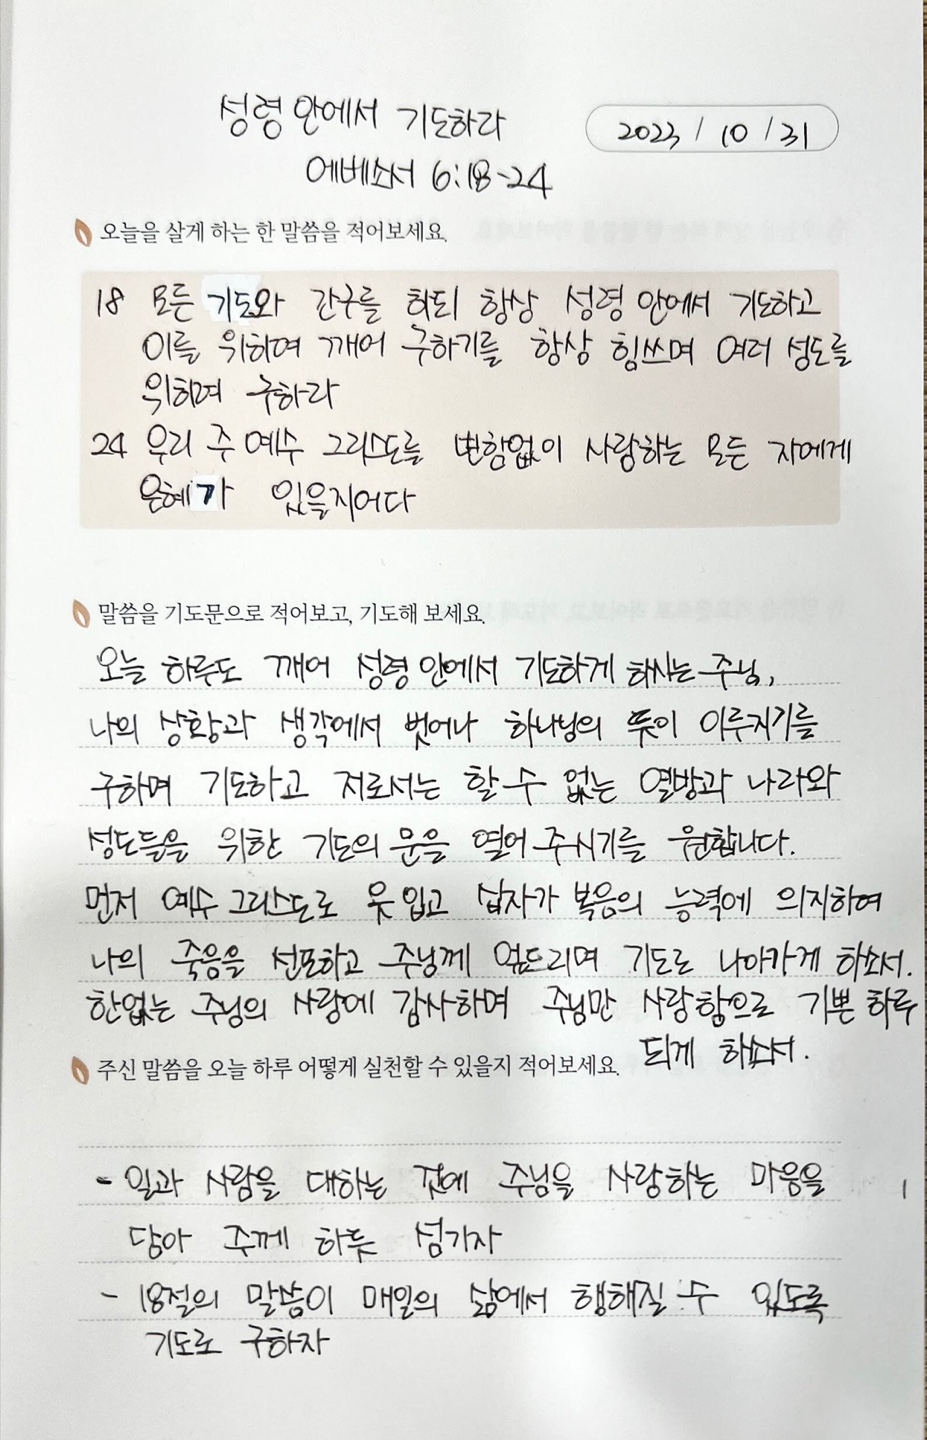 성령 안에서 기도하라
2023 / 10 / 31
에베소서 6:18-24
오늘을 살게 하는 한 말씀을 적어보세요.
18 모든 기도와 간구를 하되 항상 성령 안에서 기도하고
이를 위하여 깨어 구하기를 항상 힘쓰며 여러 성도를
위하여 구하라
24 우리 주 예수 그리스도를 변함없이 사랑하는 모든 자에게
은혜가 있을지어다
말씀을 기도문으로 적어보고, 기도해 보세요.
오늘 하루도 깨어 성령 안에서 기도하게 하시는 주님,
나의 상황과 생각에서 벗어나 하나님의 뜻이 이루지기를
구하며 기도하고 저로서는 할 수 없는 열방과 나라와
성도들을 위한 기도의 문을 열어 주시기를 원합니다.
먼저 예수 그리스도로 옷 입고 십자가 복음의 능력에 의지하여
나의 죽음을 선포하고 주님께 엎드리며 기도로 나아가게 하소서.
한없는 주님의 사랑에 감사하며 주님만 사랑함으로 기쁜 하루
되게 하소서.
주신 말씀을 오늘 하루 어떻게 실천할 수 있을지 적어보세요.
- 일과 사람을 대하는 것에 주님을 사랑하는 마음을
담아 주께 하듯 섬기자
- 18절의 말씀이 매일의 삶에서 행해질 수 있도록
기도로 구하자